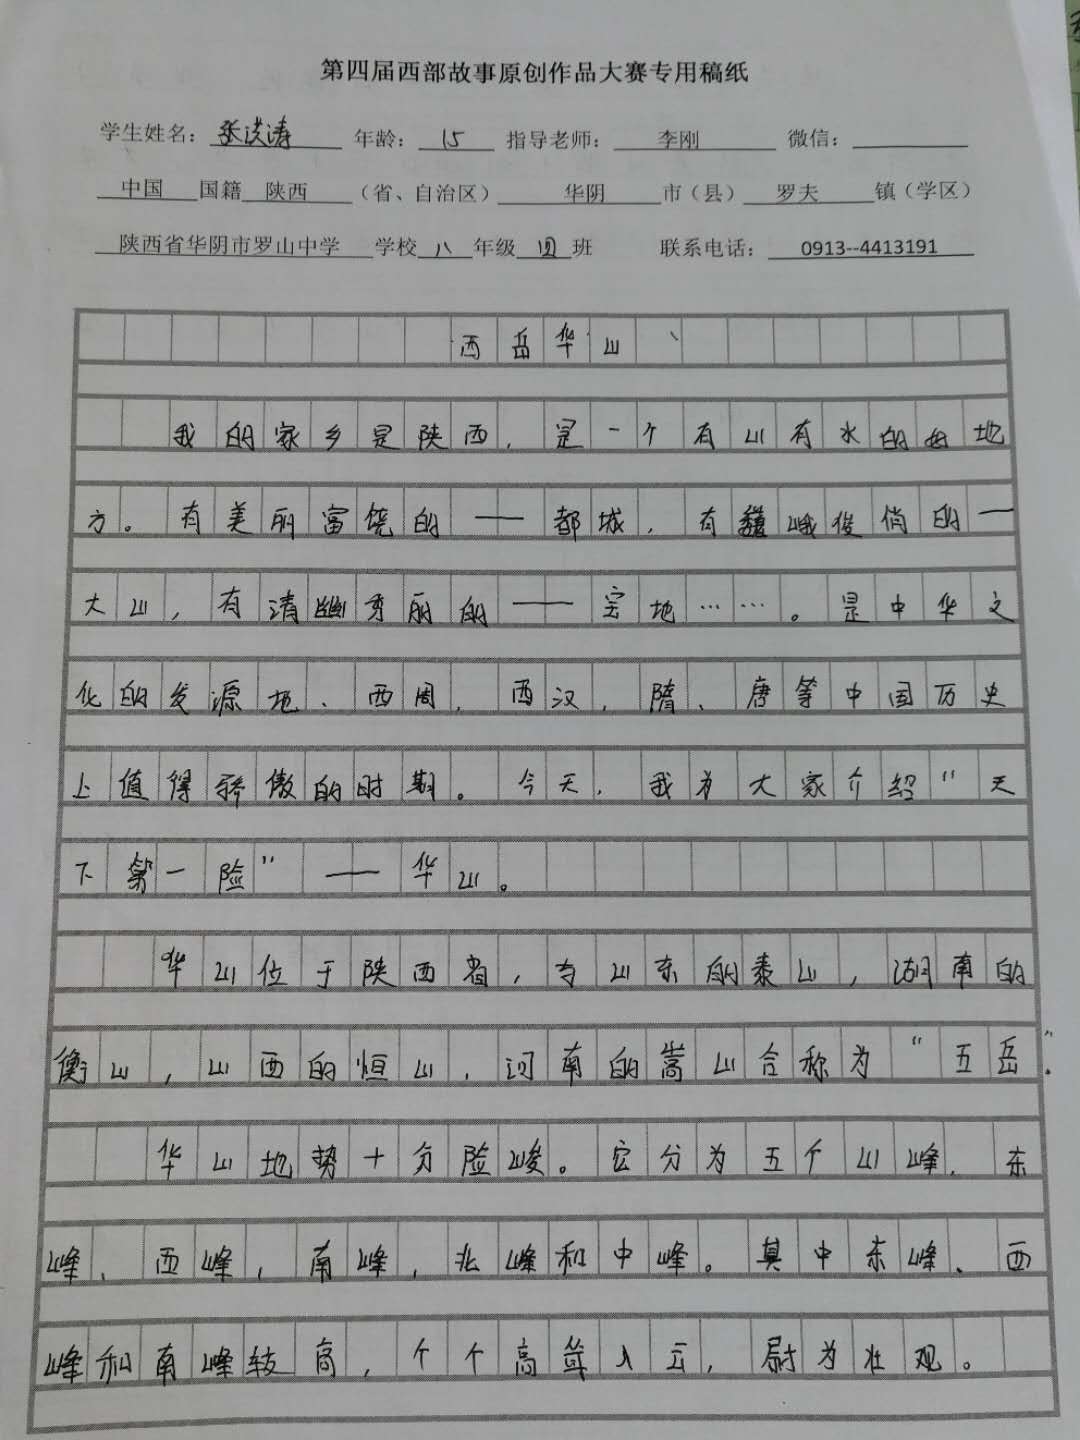 第四届西部故事原创作品大赛专用稿纸
学生姓名：张洪涛 年龄：15 指导老师：李刚 微信：
中国 国籍 陕西 （省、自治区） 华阴 市（县） 罗夫 镇（学区）
陕西省华阴市罗山中学 学校 八 年级 四 班 联系电话：0913--4413191
西岳华山
我的家乡是陕西，是一个有山有水的好地
方。有美丽富饶的——都城，有巍峨俊俏的—
大山，有清幽秀丽的——宝地……。是中华文
化的发源地、西周，西汉，隋、唐等中国历史
上值得骄傲的时期。今天，我为大家介绍“天
下第一险”——华山。
华山位于陕西省，与山东的泰山，湖南的
衡山，山西的恒山，河南的嵩山合称为“五岳”.
华山地势十分险峻。它分为五个山峰，东
峰、西峰，南峰，北峰和中峰。其中东峰、西
峰和南峰较高，个个高耸入云，尉为壮观。